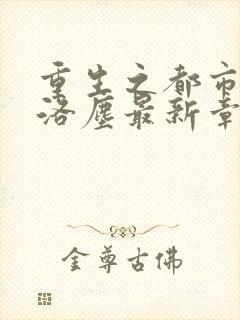 重生之都市
洛塵最新章
金尊古佛